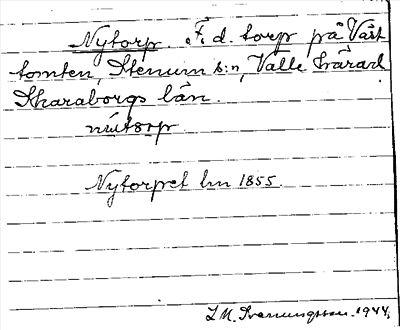 Nytorp. F. d. torp på Väst
tomten, Stenum s:n, Valle härad
Skaraborgs län.
nu̇torp
Nytorpet lm 1855.
L. M. Svanungsson. 1944.